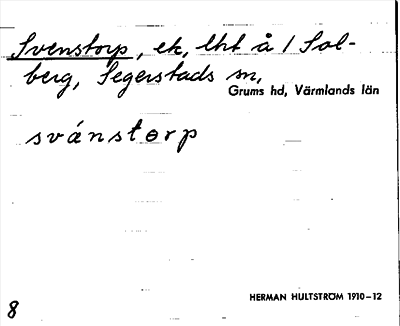 Svenstorp, ek, lht å 1 Sol-
berg, Segerstads sn,
Grums hd, Värmlands län
svánstɵrp
HERMAN HULTSTRÖM 1910-12
8